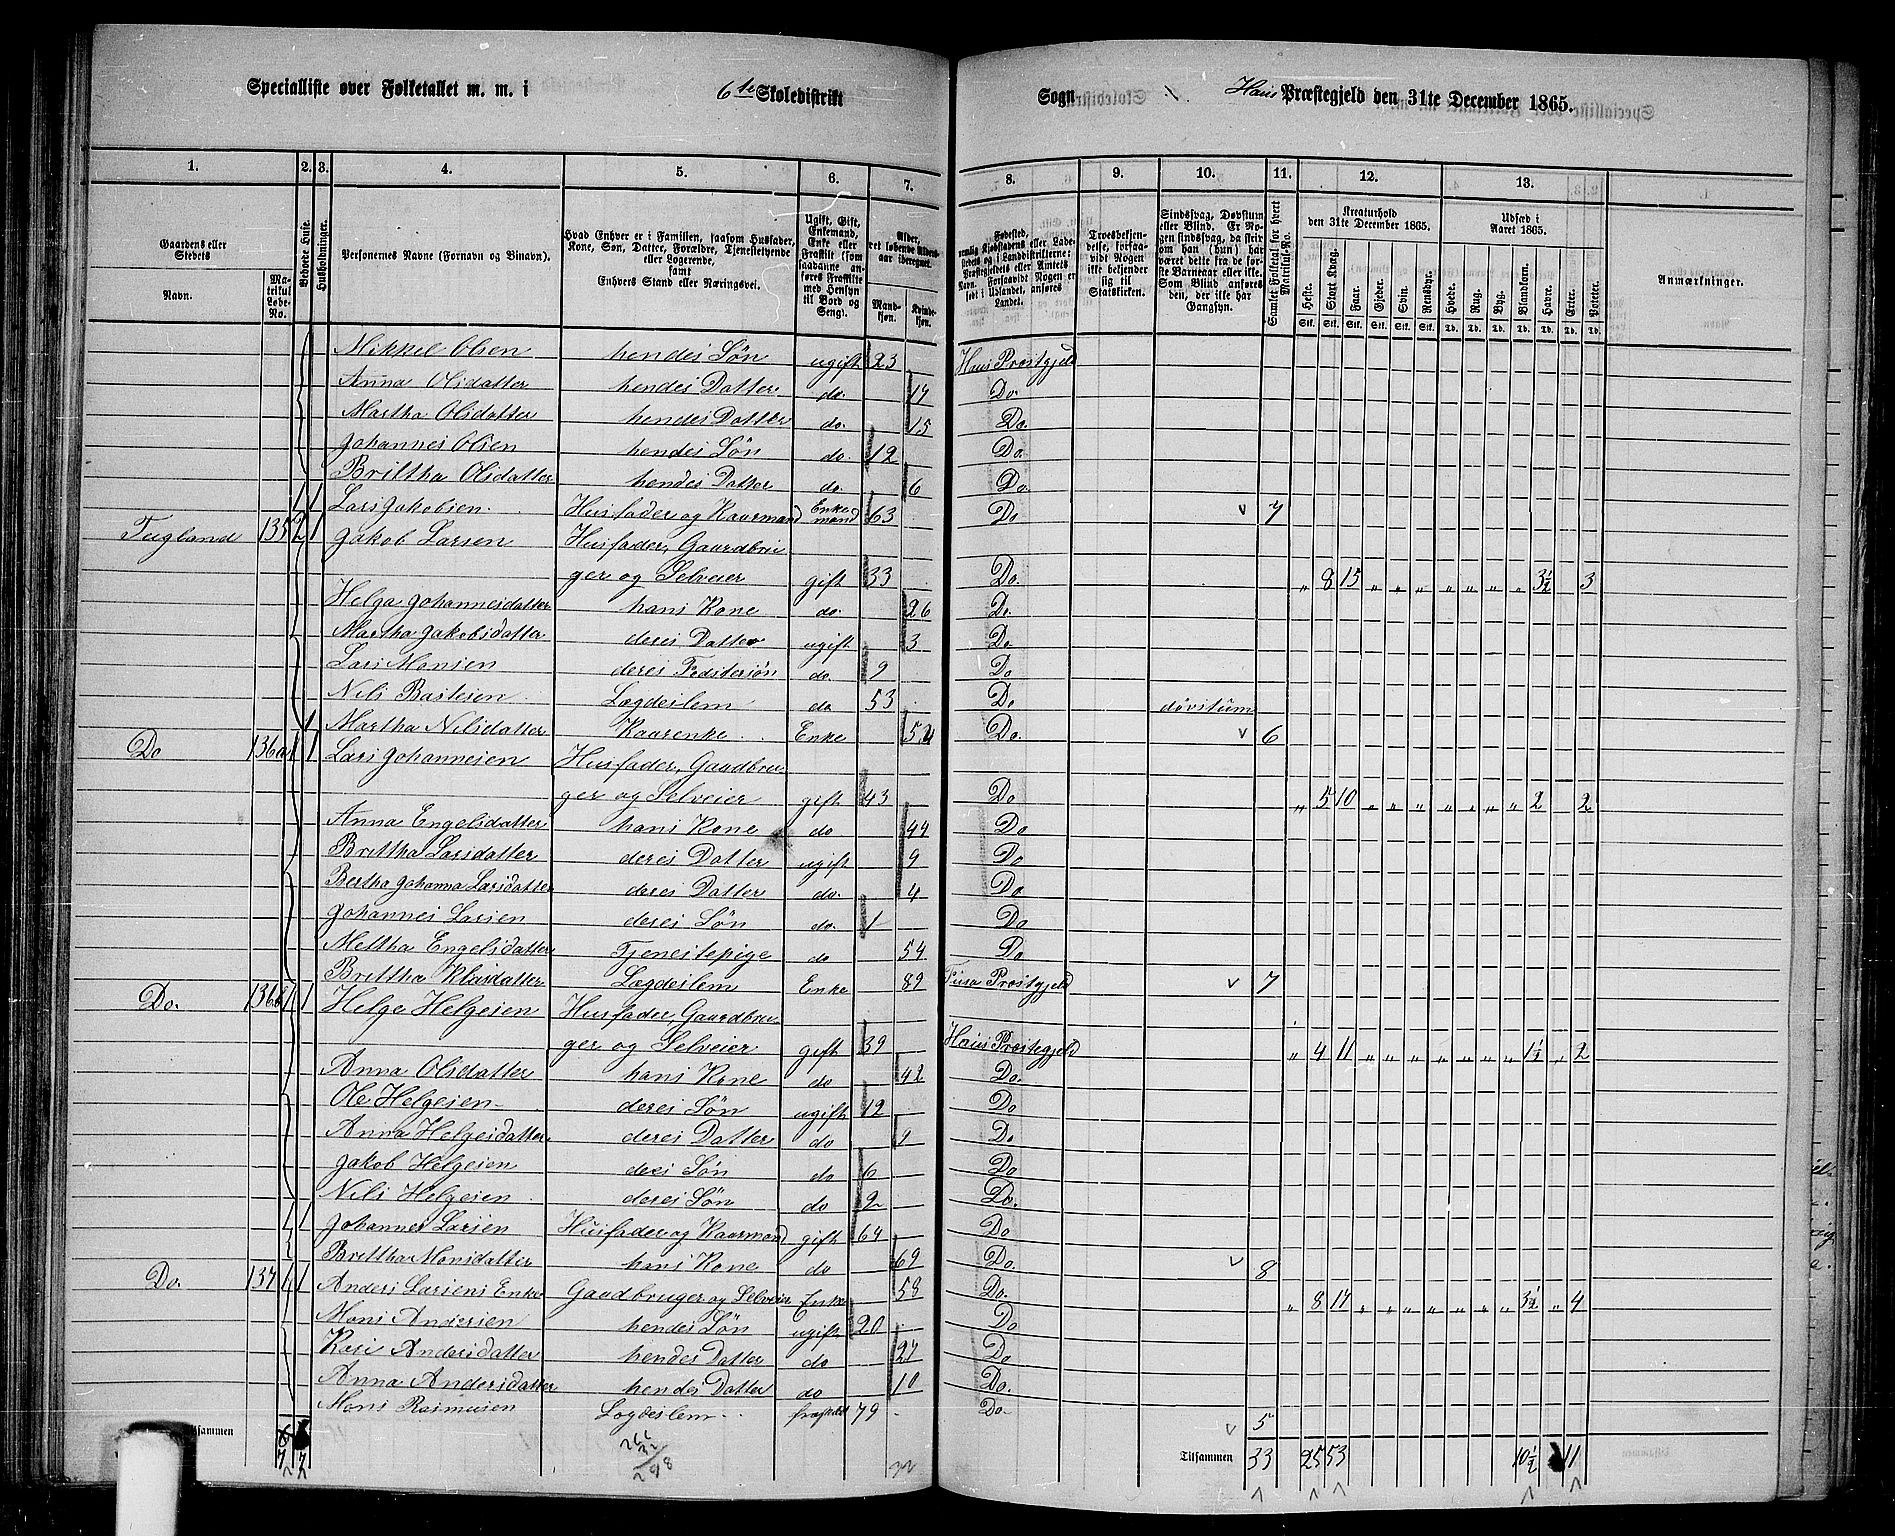 Specialliste over Folketallet m. m. i 6te Skoledistrikt Sogn Haus Præstegjeld den 31te December 1865.
1. 2. 3. 4. 5. 6. 7. 8. 9. 10. 11. 12. 13.
Gaardens eller Stedets Navn. Matrikul Løbe-No. Beboede Huse. Husholdninger.
Personernes Navne (Fornavn og Binavn).
Hvad Enhver er i Familien, saasom Husfader, Kone, Søn, Datter, Forældre, Tjenestetyende eller Logerende, samt Enhvers Stand eller Næringsvei.
Ugift, Gift, Enkemand, Enke eller Fraskilt (som saadanne anføres Fraskilte med Hensyn til Bord og Seng).
Alder, det løbende Aldersaar iberegnet. Mandkjøn. Kvindekjøn.
Troesbekjendelse, forsaavidt Nogen ikke bekjender sig til Statskirken.
Samlet Folketal for hvert Matrikuls-No.
Kreaturhold den 31te December 1865. Heste. Stort Kvæg. Faar. Gjeder. Svin. Rensdyr.
Udsæd i Aaret 1865. Hvede. Rug. Byg. Blandkorn. Havre. Erter. Poteter.
Anmærkninger.
Mikkel Olsen hendes Søn ugift 23 Haus Prestgjeld
Anna Olsdatter hendes Datter do. 17 Do.
Martha Olsdatter hendes Datter do. 15 Do.
Johannes Olsen hendes Søn do. 12 Do.
Brittha Olsdatter hendes Datter do. 6 Do.
1 Lars Jakobsen Husfader og Kaarmand Enkemand 63 Do 7
Tugland 135 2 1 Jakob Larsen Husfader, Gaardbru-
ger og Selveier gift 33 Do. " 8 15 " " " " " " " 3½ 3
Helga Johannesdatter hans Kone do. 26 Do.
Martha Jakobsdatter deres Datter ugift 3 Do.
Lars Monsen deres Fostersøn do. 9 Do
Nils Bastesen Lægdeslem do 53 Do døvstum
1 Martha Nilsdatter Kaarenke Enke 52 Do. 6
Do 136a 1 1 Lars Johannesen Husfader, Gaardbru-
ger og Selveier gift 43 Do " 5 10 " " " " " " " 2 2
Anna Engelsdatter hans Kone do 44 Do
Brittha Larsdatter deres Datter ugift 9 Do
Bertha Johanna Larsdatter deres Datter do. 4 Do
Johannes Larsen deres Søn do. 1 Do
Meltha Engelsdatter Tjenestepige do 54 Do
Brittha Klasdatter Lægdeslem Enke 89 Fusa Prestgjeld 7
Do. 136b 1 1 Helge Helgesen Husfader, Gaardbru-
ger og Selveier gift 39 Haus Prestegjeld " 4 11 " " " " " " " 1½ " 2
Anna Olsdatter hans Kone do 42 Do.
Ole Helgesen deres Søn ugift 12 Do
Anna Helgesdatter deres Datter do 1 Do
Jakob Helgesen deres Søn do 6 Do
Nils Helgesen deres Søn do 2 Do.
1 Johannes Larsen Husfader og Kaarmand gift 64 Do
Brittha Monsdatter hans Kone do 69 Do 8
Do. 137 1 1 Anders Larsens Enke Gaardbruger og Selveier Enke 58 Do. " 8 17 " " " " " " " 3½ " 4
Mons Andersen hendes Søn ugift 20 Do
Kari Andersdatter hendes Datter do 27 Do
Anna Andersdatter hendes Datter do 10 Do.
Mons Rasmusen Lægdeslem fraskilt 79 Do. 5
Tilsammen 7 7 266 32 298 Tilsammen 33 25 53 10½ 11